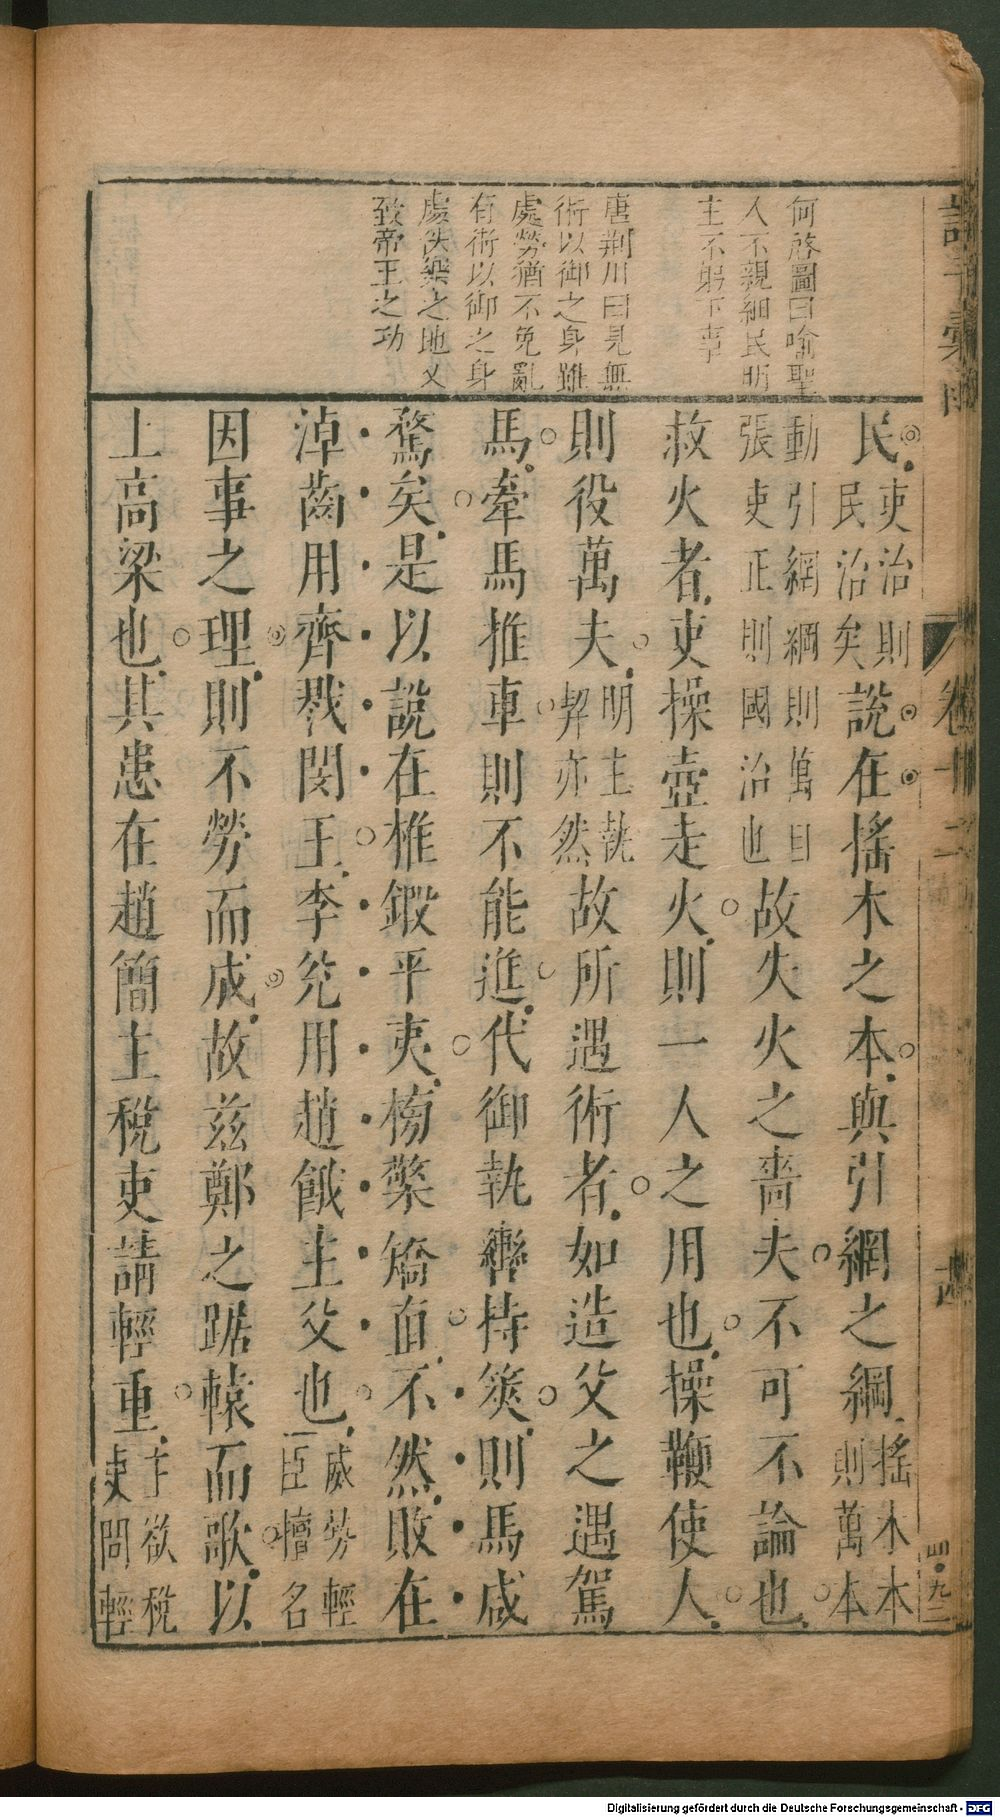 何啓圖曰喻聖
人不親細民明
主不躬下事
唐荆川曰見無
術以御之身雖
處勞猶不免亂
有術以御之身
處佚樂之地又
致帝王之功
民吏治則民治矣說在搖木之本與引網之綱搖木本則萬本
動引網綱則萬目張吏正則國治也故失火之嗇夫不可不論也
救火者吏操壺走火則一人之用也操鞭使人
則役萬夫明主執契亦然故所遇術者如造父之遇駕
馬牽馬推車則不能進代御執轡持筴則馬咸
騖矣是以說在椎鍛平夷榜檠矯直不然敗在
淖齒用齊戮閔王李兌用趙餓主父也威勢輕臣擅名
因事之理則不勞而成故茲鄭之踞轅而歌以
上高梁也其患在趙簡主稅吏請輕重主欲稅吏問輕
卷十二
十四
四·九二
Digitalisierung gefördert durch die Deutsche Forschungsgemeinschaft - DFG